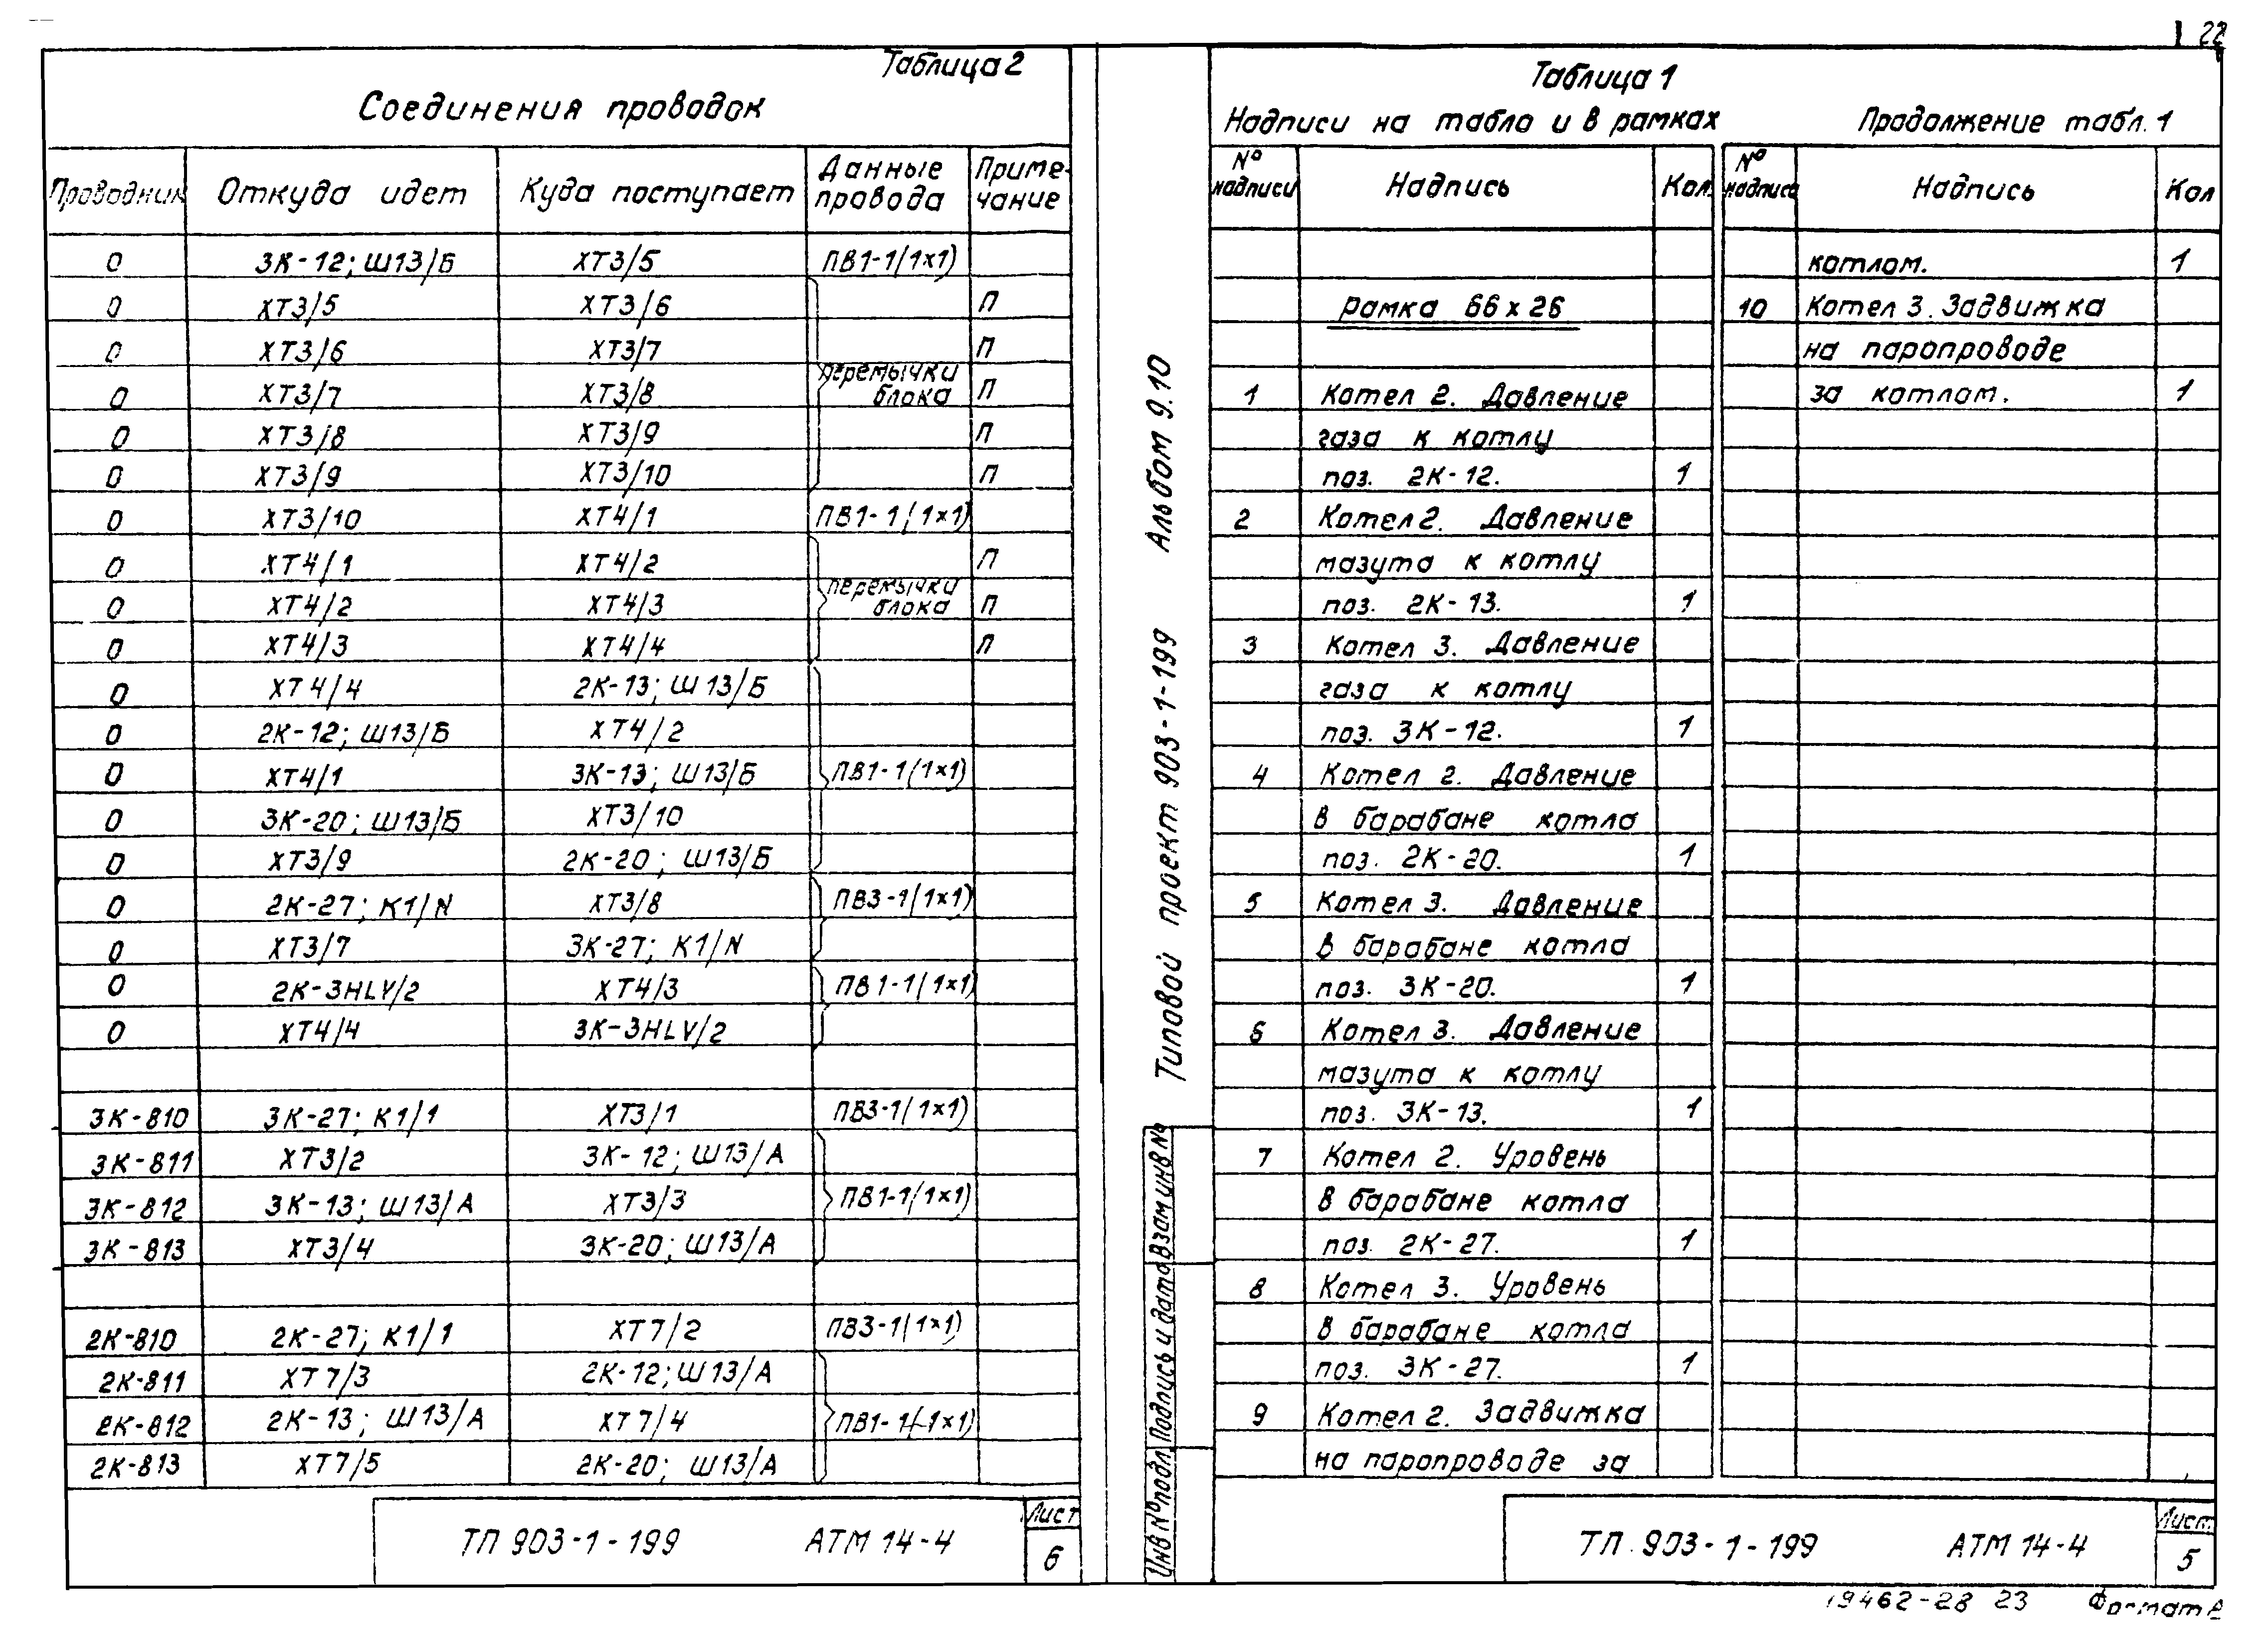 22
Таблица 2
Соединения проводок
Проводник | Откуда идет | Куда поступает | Данные провода | Приме-чание
0 | 3К-12; Ш13/Б | ХТ3/5 | ПВ1-1(1×1)
0 | ХТ3/5 | ХТ3/6 | П
0 | ХТ3/6 | ХТ3/7 | П
0 | ХТ3/7 | ХТ3/8 | перемычки блока | П
0 | ХТ3/8 | ХТ3/9 | П
0 | ХТ3/9 | ХТ3/10 | П
0 | ХТ3/10 | ХТ4/1 | ПВ1-1(1×1)
0 | ХТ4/1 | ХТ4/2 | П
0 | ХТ4/2 | ХТ4/3 | перемычки блока | П
0 | ХТ4/3 | ХТ4/4 | П
0 | ХТ4/4 | 2К-13; Ш13/Б
0 | 2К-12; Ш13/Б | ХТ4/2
0 | ХТ4/1 | 3К-13; Ш13/Б | ПВ1-1(1×1)
0 | 3К-20; Ш13/Б | ХТ3/10
0 | ХТ3/9 | 2К-20; Ш13/Б
0 | 2К-27; К1/N | ХТ3/8 | ПВ3-1(1×1)
0 | ХТ3/7 | 3К-27; К1/N
0 | 2К-3HLV/2 | ХТ4/3 | ПВ1-1(1×1)
0 | ХТ4/4 | 3К-3HLV/2
3К-810 | 3К-27; К1/1 | ХТ3/1 | ПВ3-1(1×1)
3К-811 | ХТ3/2 | 3К-12; Ш13/А
3К-812 | 3К-13; Ш13/А | ХТ3/3 | ПВ1-1(1×1)
3К-813 | ХТ3/4 | 3К-20; Ш13/А
2К-810 | 2К-27; К1/1 | ХТ7/2 | ПВ3-1(1×1)
2К-811 | ХТ7/3 | 2К-12; Ш13/А
2К-812 | 2К-13; Ш13/А | ХТ7/4 | ПВ1-1(1×1)
2К-813 | ХТ7/5 | 2К-20; Ш13/А
ТП 903-1-199 АТМ 14-4
Лист
6
Типовой проект 903-1-199 Альбом 9.10
Инв № подл. Подпись и дата Взам инв №
Таблица 1
Надписи на табло и в рамках
Продолжение табл. 1
№ надписи | Надпись | Кол.
Рамка 66×26
1 | Котел 2. Давление
газа к котлу
поз. 2К-12. | 1
2 | Котел 2. Давление
мазута к котлу
поз. 2К-13. | 1
3 | Котел 3. Давление
газа к котлу
поз. 3К-12. | 1
4 | Котел 2. Давление
в барабане котла
поз. 2К-20. | 1
5 | Котел 3. Давление
в барабане котла
поз. 3К-20. | 1
6 | Котел 3. Давление
мазута к котлу
поз. 3К-13. | 1
7 | Котел 2. Уровень
в барабане котла
поз. 2К-27. | 1
8 | Котел 3. Уровень
в барабане котла
поз. 3К-27. | 1
9 | Котел 2. Задвижка
на паропроводе за
№ надписи | Надпись | Кол
котлом. | 1
10 | Котел 3. Задвижка
на паропроводе
за котлом. | 1
ТП 903-1-199 АТМ 14-4
Лист
5
19462-28 23 Формат